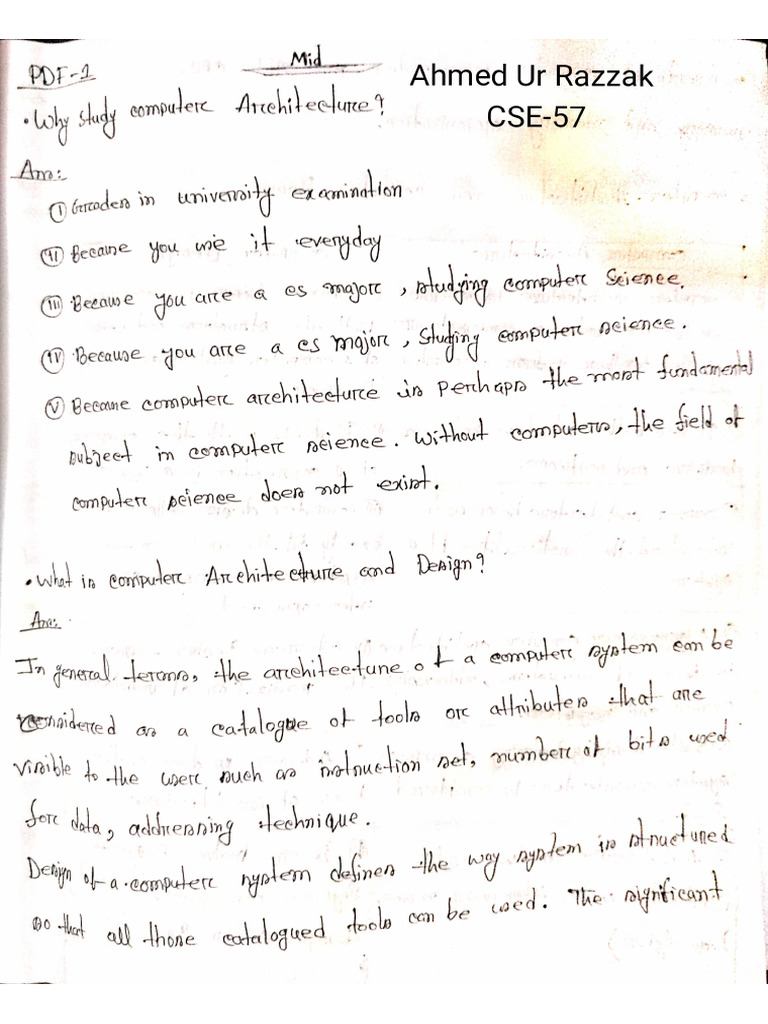 PDF-1
Mid
Ahmed Ur Razzak
CSE-57
• Why study computer Architecture?
Ans:
(I) Grades in university examination
(II) Because you use it everyday
(III) Because you are a cs major, studying computer Science.
(IV) Because you are a cs major, studying computer science.
(V) Because computer architecture is perhaps the most fundamental
subject in computer science. Without computers, the field of
computer science does not exist.
• What is computer Architecture and Design?
Ans:
In general terms, the architecture of a computer system can be
considered as a catalogue of tools or attributes that are
visible to the user such as instruction set, number of bits used
for data, addressing technique.
Design of a computer system defines the way system is structured
so that all those catalogued tools can be used. The significant